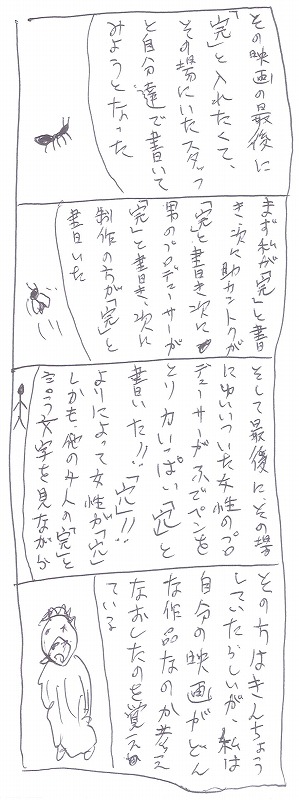 その映画の最後に
「完」と入れたくて、
その場にいたスタッフ
と自分達で書いて
みようとなった
まず私が「完」と書
き次に助カントクが
「完」と書き次に
男のプロデューサーが
「完」と書き、次に
制作の方が「完」と
書いた
そして最後にその場
にゆいいついた女性のプロ
デューサーがふでペンを
とり力いっぱい「穴」と
書いた!!「穴」!!
よりによって女性が「穴」
しかも他の4人の「完」と
言う文字を見ながら
その方はきんちょう
していたらしいが、私は
自分の映画がどん
な作品なのか考え
なおしたのを覚え
ている